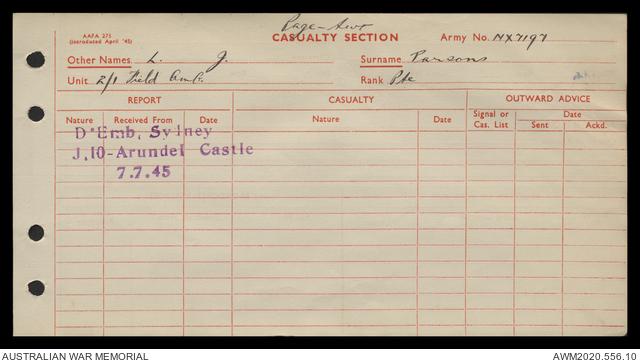 AAFA 275
(introduced April '45)
Page-Two
CASUALTY SECTION
Army No. NX7197
Other Names L. J.
Surname Parsons
Unit 2/1 Field Amb.
Rank Pte
REPORT
CASUALTY
OUTWARD ADVICE
Nature
Received From
Date
Nature
Date
Signal or Cas. List
Date
Sent
Ackd.
D'Emb, Sydney
J.10-Arundel Castle
7.7.45
AUSTRALIAN WAR MEMORIAL
AWM2020.556.10